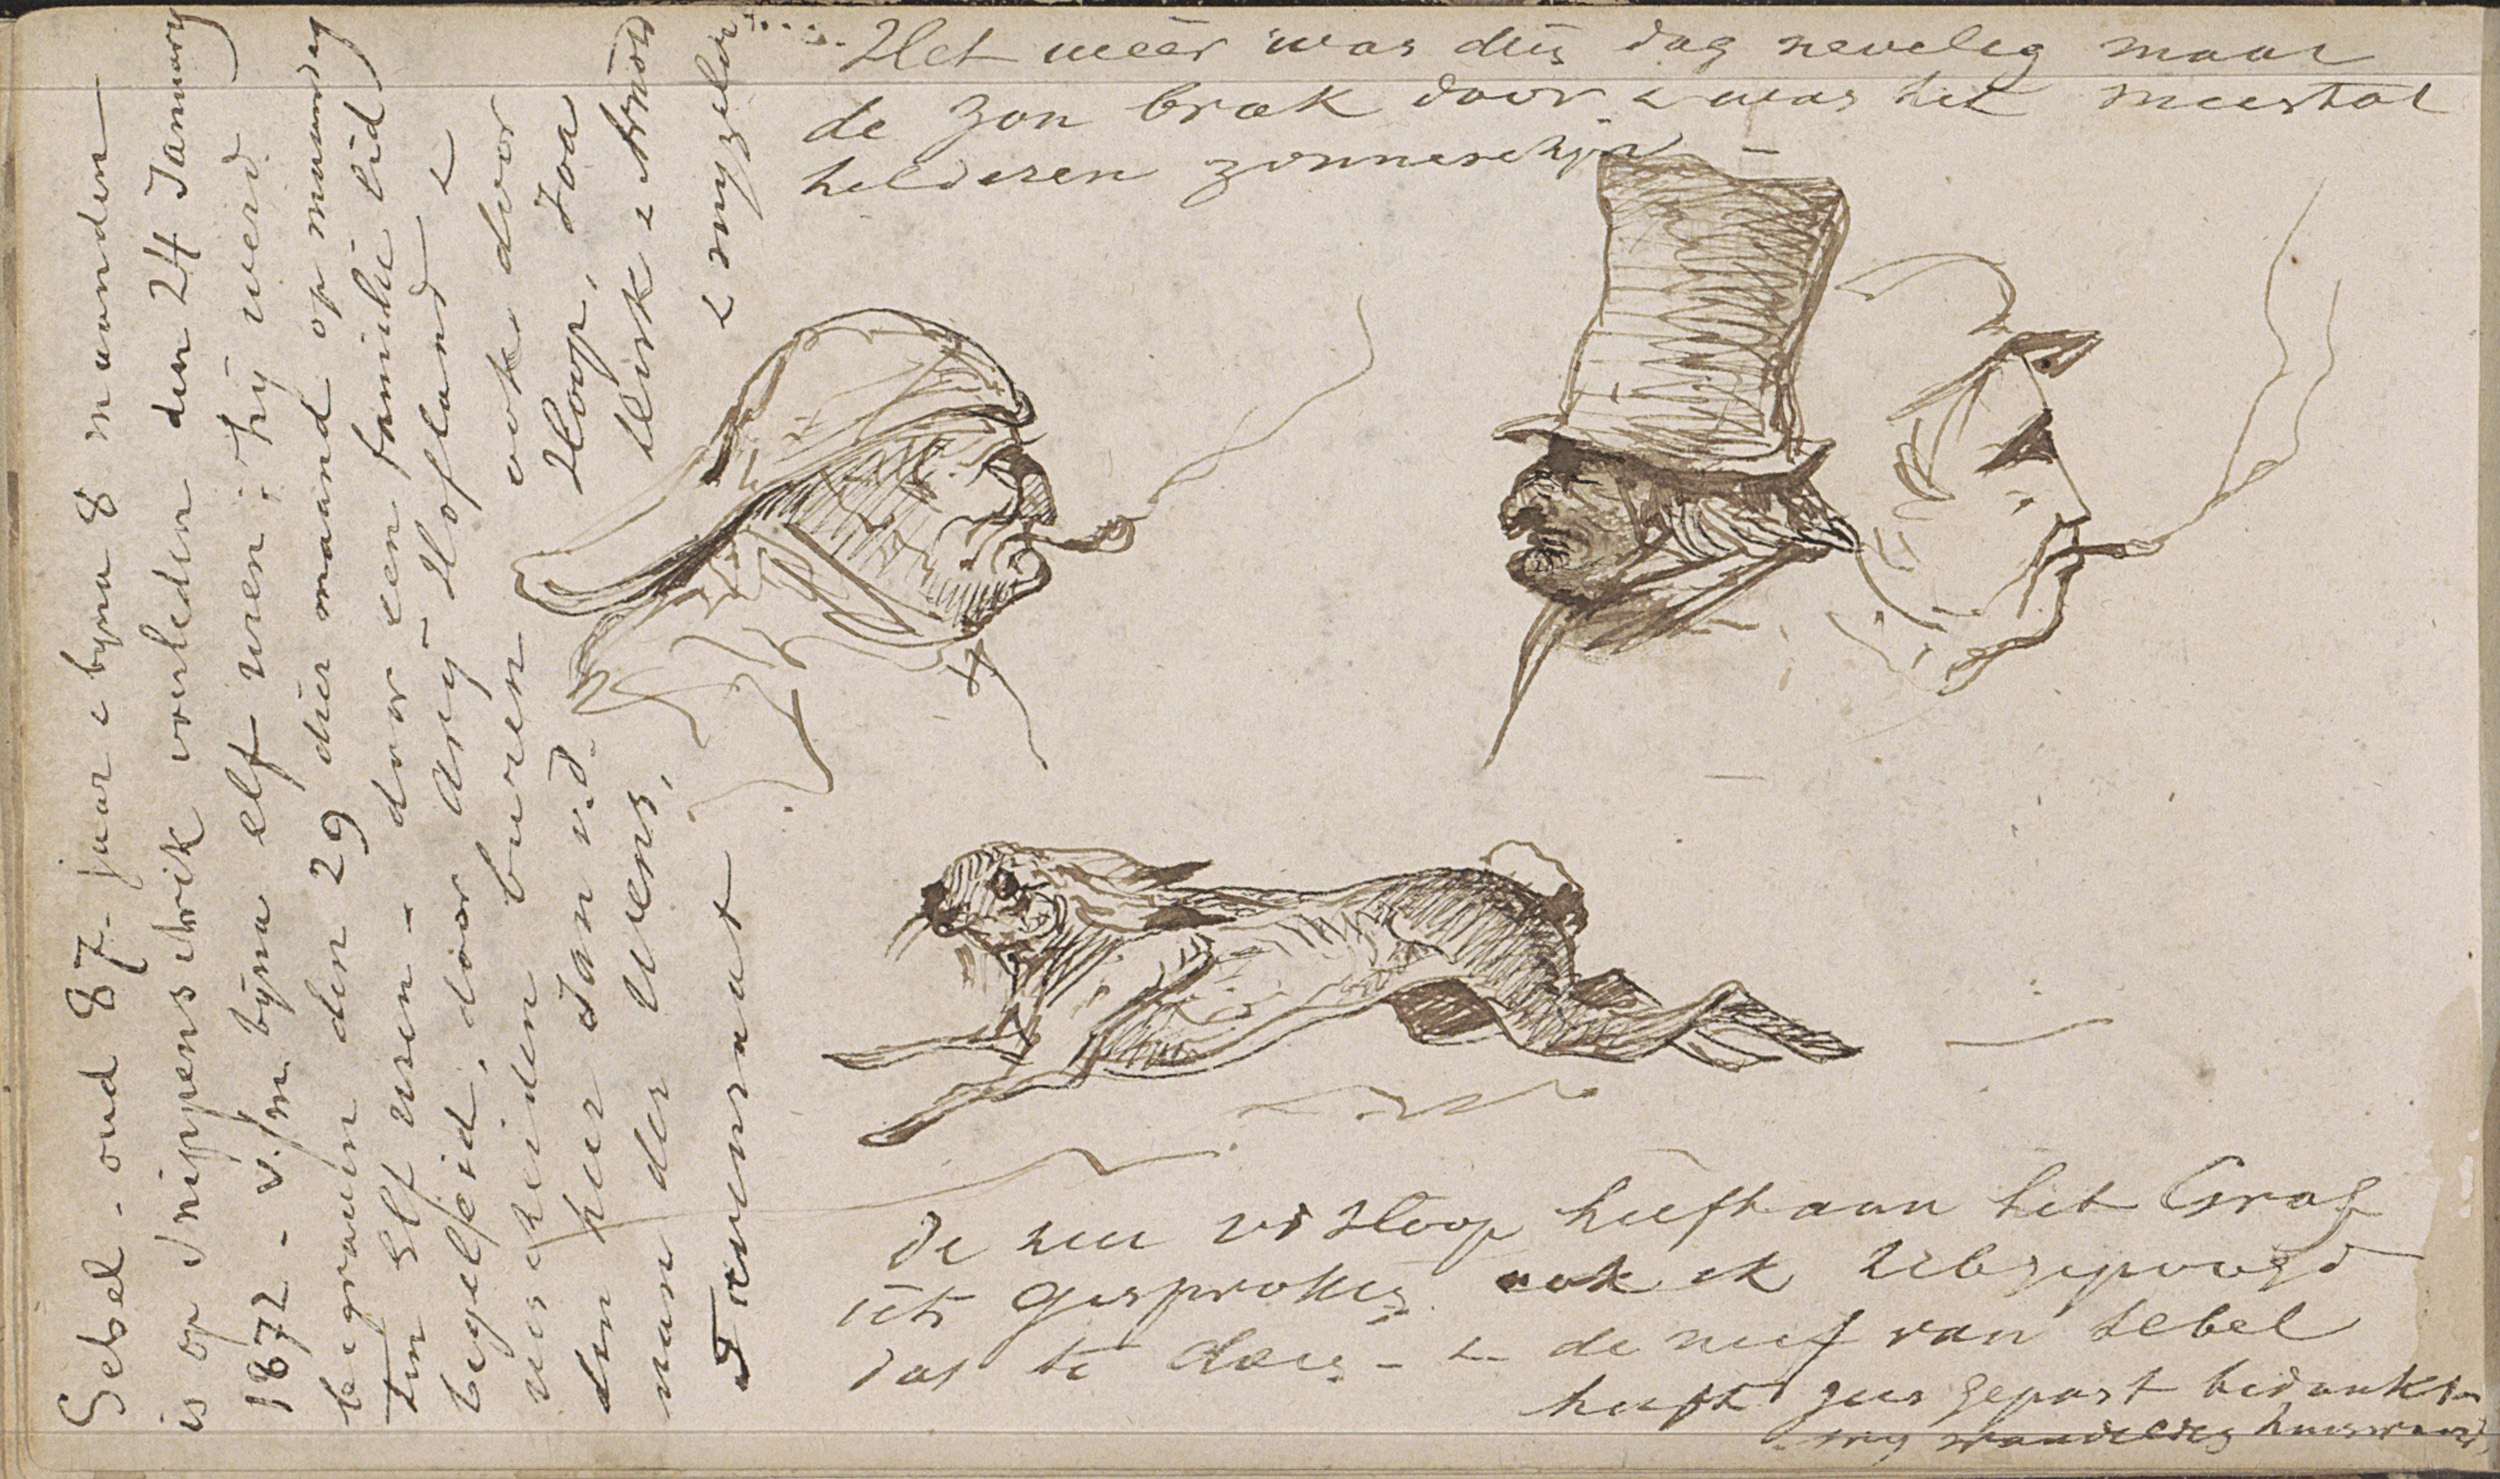 Sebel - oud 87 - jaar & byna 8 maanden
is op Snippenschrik overleden den 24 January
1872 - v/m byna elf uren: hij werd
begraven den 29 dier maand op maandag
ten Elf uren - door een familie lid
begeleid, door Arij Hofland &
verscheiden buren ook door
den heer Jan v.d. Hoop, Joa
van der Wens, Kirk & Arnold
& myzelve
Het weêr was dien dag nevelig maar
de zon brak door & was het meestal
helderen zonneschijn -
de heer vd Hoop heeft aan het Graf
iets gesproken ook ik heb gepoogd
dat te doen - & de neef van Sebel
heeft zeer gepast bedankt &
wy wandelden huiswaard